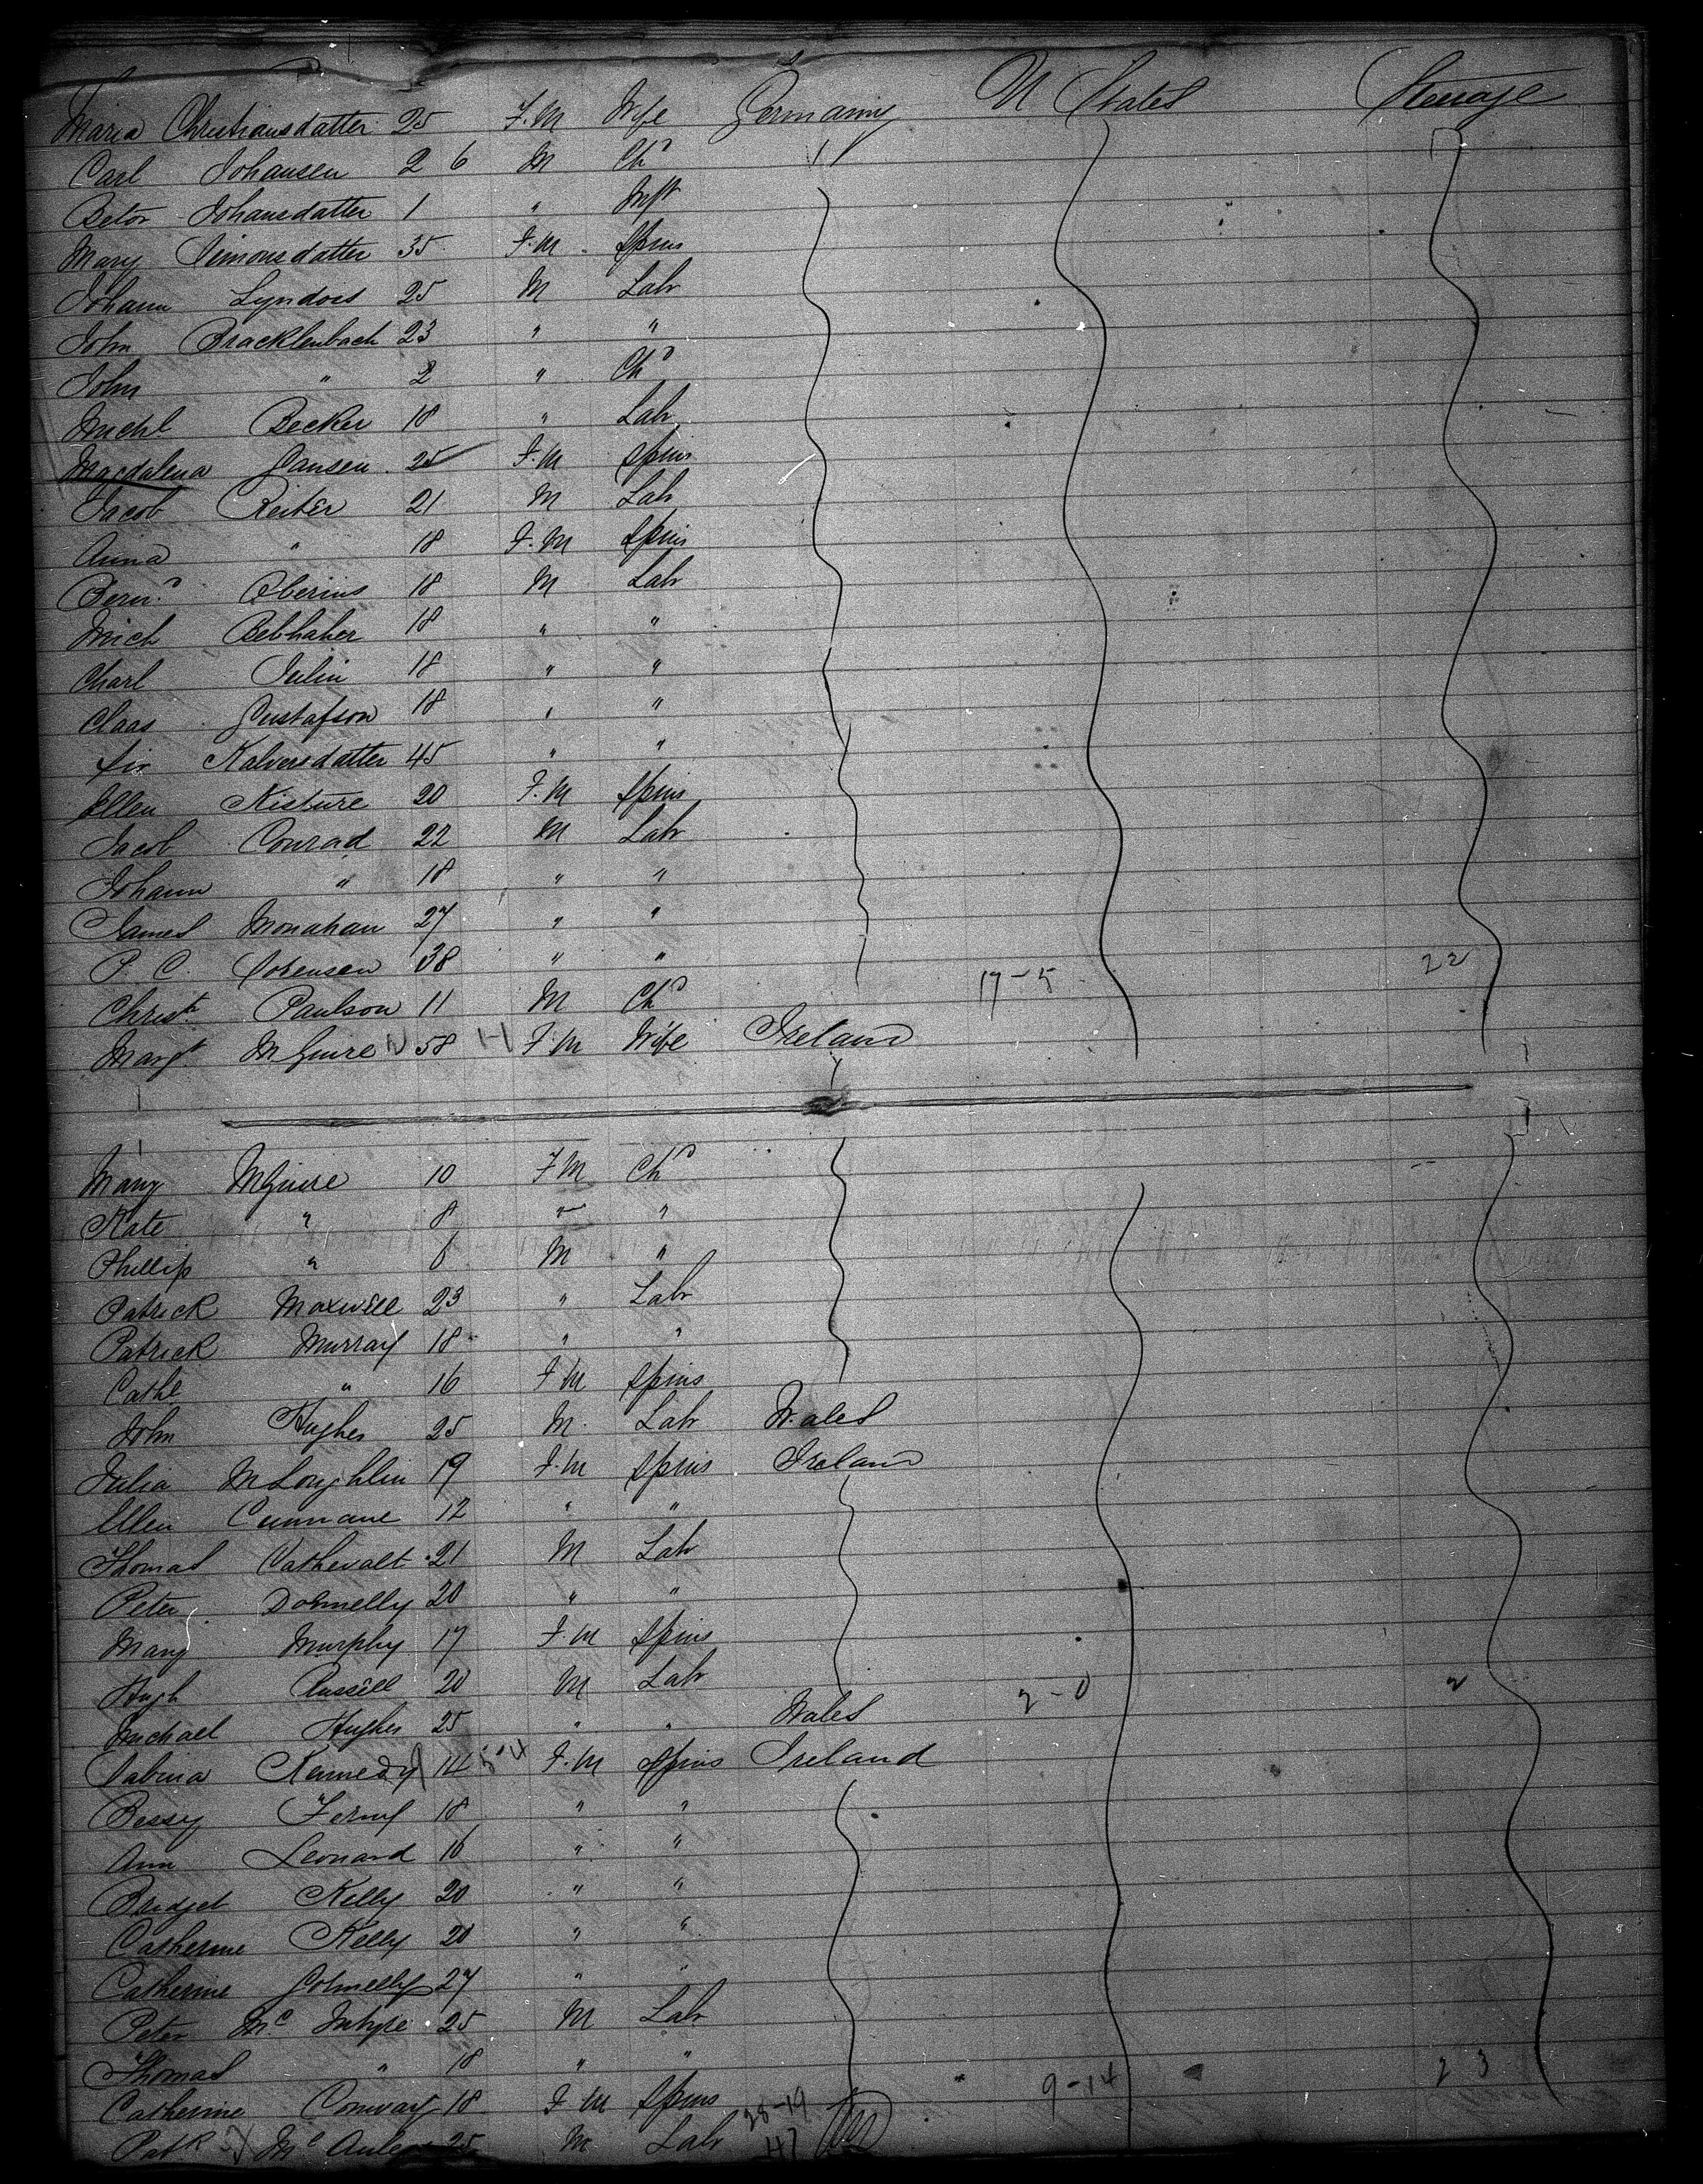 Maria Christiansdatter 25 F.M Wife Germany U States Steerage
Carl Johansen 2 6 M Chd
Johansdatter 1 " Inft
Mary Simonsdatter 35 F.M Spins
Johann 25 M Labr
John Bracklenbach 23 " "
John " 2 " Chd
Michl Becker 18 " Labr
Magdalena Jansen 25 F.M Spins
Jacob Reiter 21 M Labr
Anna " 18 F.M Spins
Bernd 18 M Labr
Mich 18 " "
Charl Julin 18 " "
Claas Gustafson 18 " "
Kalversdatter 45 " "
Ellen 20 F.M Spins
Jacob Conrad 22 M Labr
Johann " 18 " "
James Monahan 27 " "
P. C. Sorensen 38 " " 22
Christn Paulson 11 M Chd 17-5
Margt McGuire 58 F.M Wife Ireland
Mary McGuire 10 F M Chd
Kate " 8 " "
Phillip " 6 M "
Patrick Maxwell 23 " Labr
Patrick Murray 18 " "
Cathe " 16 F M Spins
John Hughes 25 M. Labr Wales
Julia McLoughlin 19 F.M Spins Ireland
Ellen Cunnane 12 " "
Thomas 21 M Labr
Peter Donnelly 20 " "
Mary Murphy 17 F.M Spins
Hugh Russell 20 M Labr 2-0 2
Michael Hughes 25 " " Wales
Sabina Kennedy 14 F.M Spins Ireland
Bessy 18 " "
Ann Leonard 16 " "
Bridget Kelly 20 " "
Catherine Kelly 20 " "
Catherine 27 " "
Peter Mc Intyre 25 M Labr
Thomas " 18 " " 9-14 23
Catherine Conway 18 F M Spins 28-19
Patk Mc 25 M Labr 47